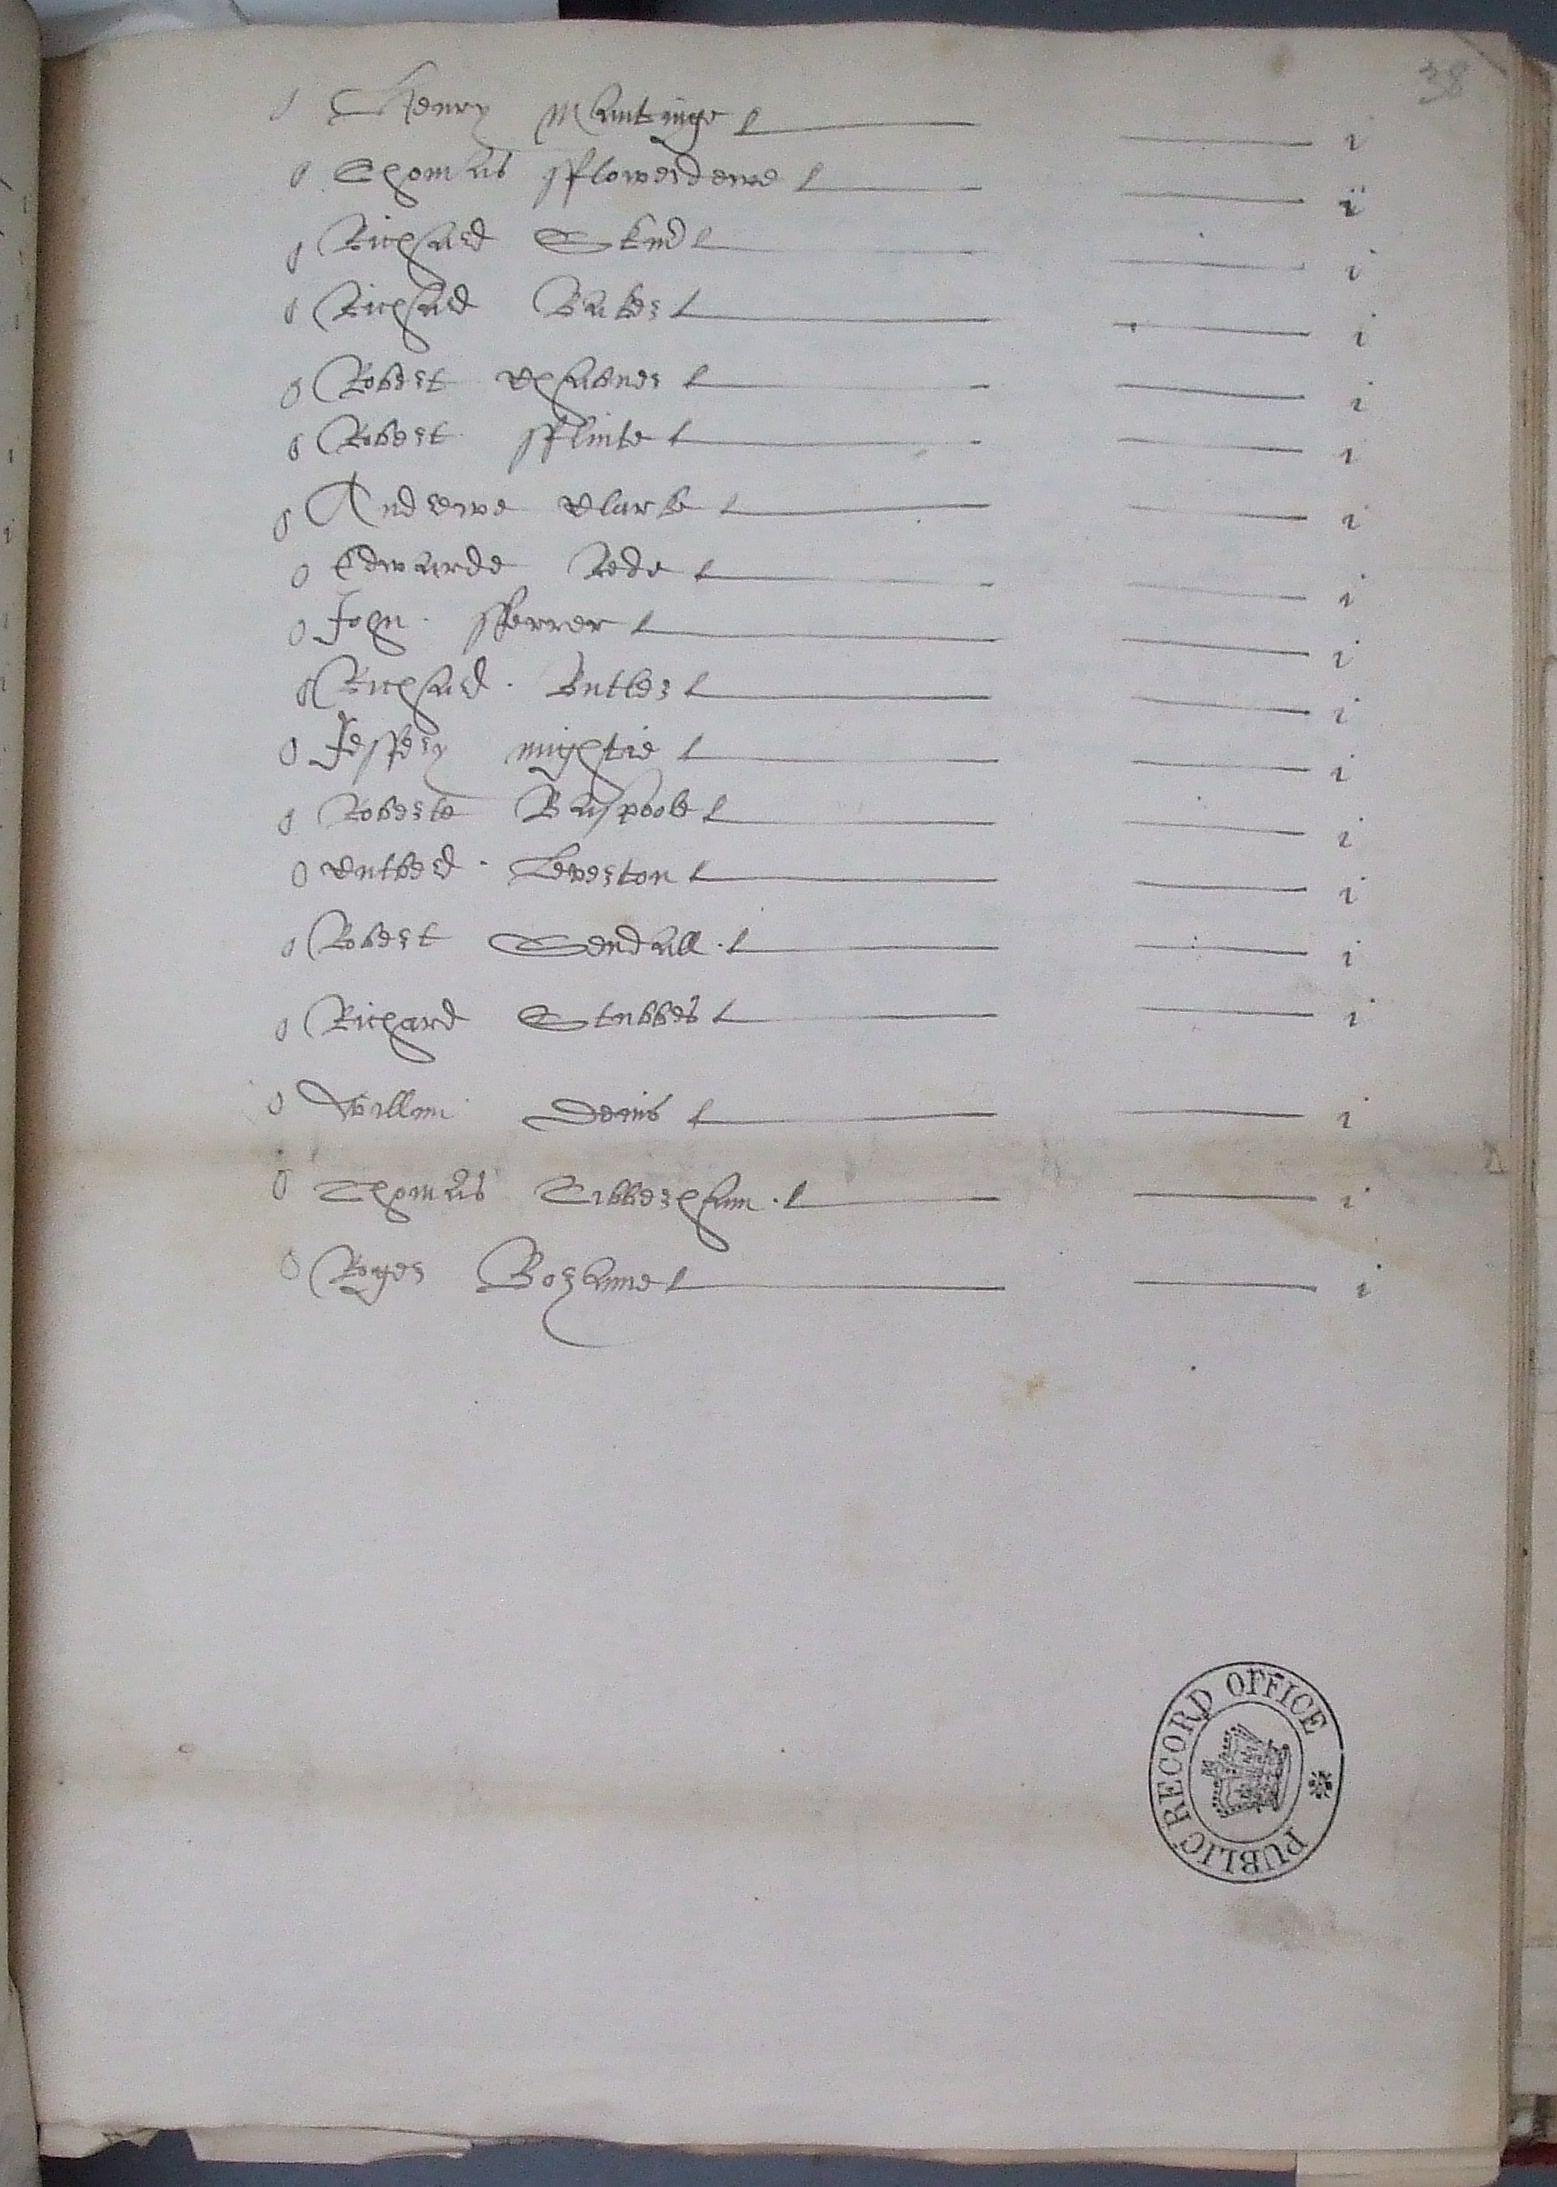 38
o Henry Mantinge i
o Thomas fflowerdewe ii
o Richard i
o Richard Baker i
o Robert i
o Robert fflinte i
o Andrewe Clarke i
o Edwarde Rede i
o John fferrer i
o Richard Butler i
o Jeffery mightie i
o Roberte Baspoole i
o Cutberd Leverton i
o Robert Sendall i
o Richard Stubbes i
o Willam Denis i
o Thomas Tibbenham i
o Roger Bozanne i
PUBLIC RECORD OFFICE